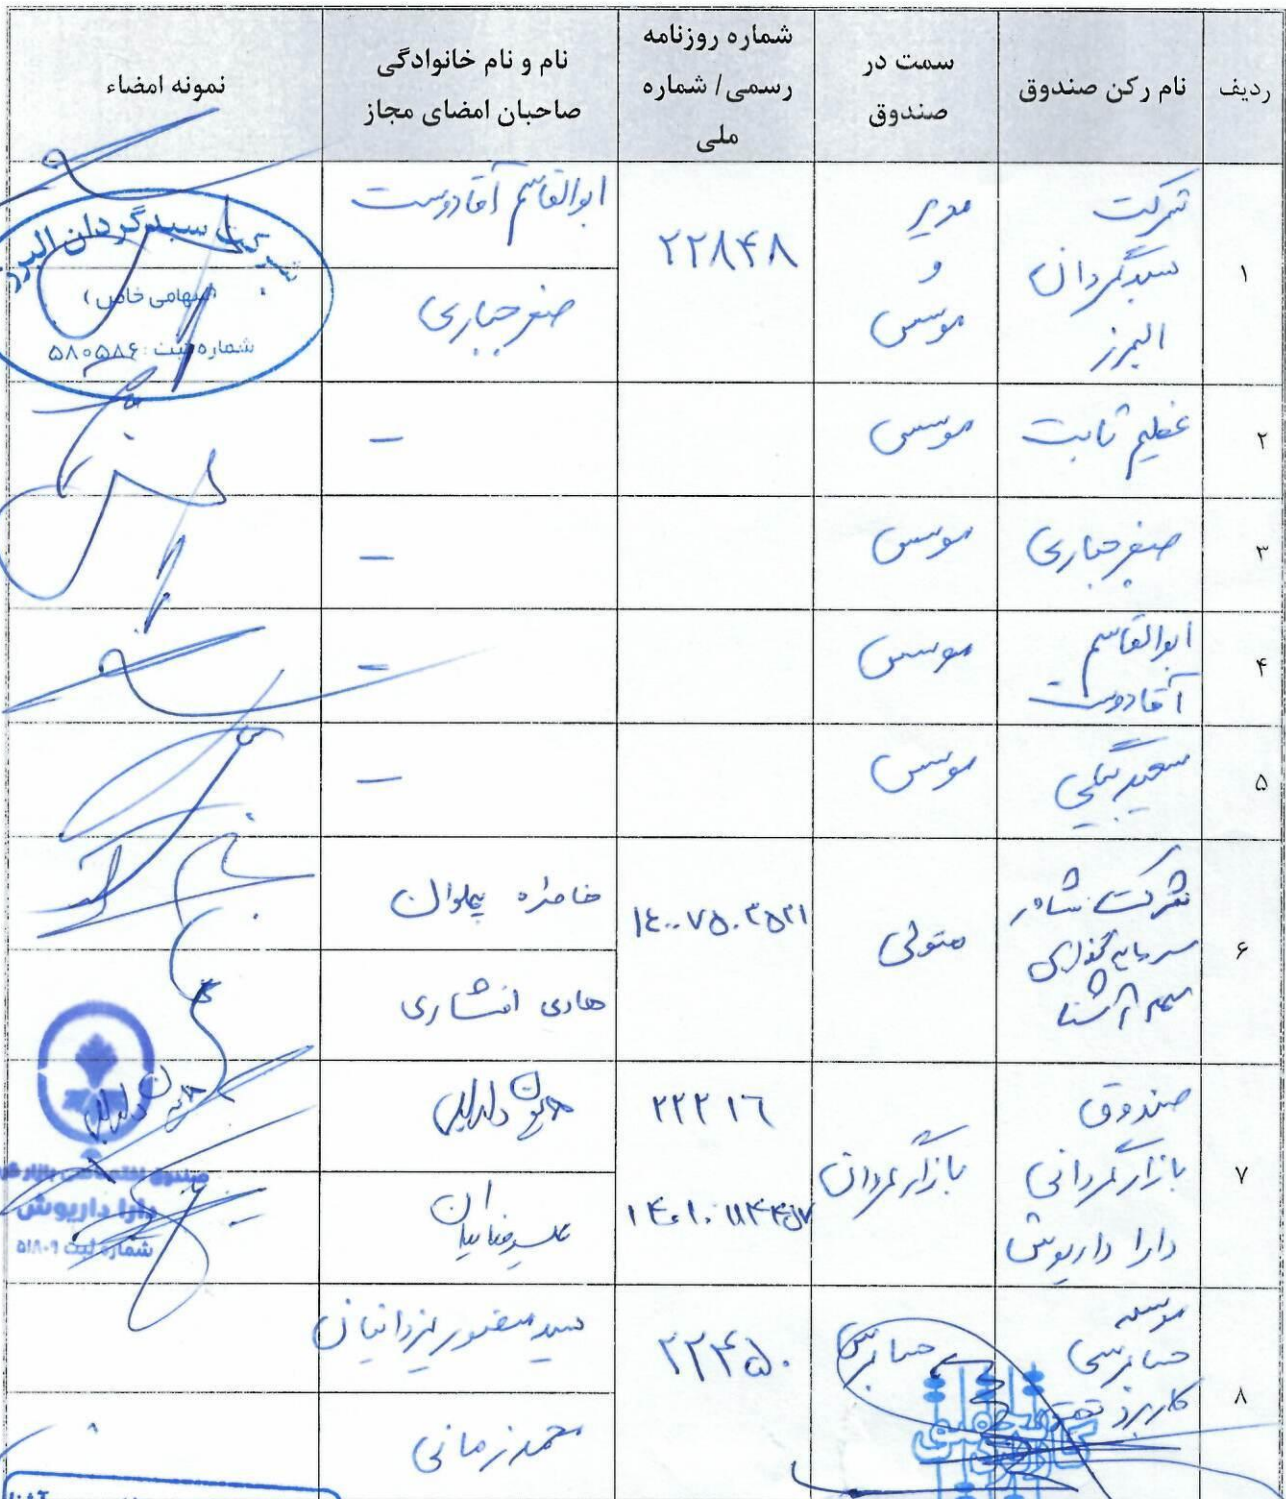 ردیف
نام رکن صندوق
سمت در
صندوق
شماره روزنامه
رسمی/ شماره
ملی
نام و نام خانوادگی
صاحبان امضای مجاز
نمونه امضاء
۱
شرکت
سبدگردان
البرز
مدیر
و
موسس
۲۲۸۴۸
ابوالقاسم آقادوست
صفر جباری
شرکت سبدگردان البرز
(سهامی خاص)
شماره ثبت: ۵۸۰۵۸۶
۲
عظیم ثابت
موسس
–
۳
صفر جباری
موسس
–
۴
ابوالقاسم
آقادوست
موسس
–
۵
سعید
موسس
–
۶
شرکت مشاور
سرمایه گذاری
سهم آشنا
متولی
۱۴۰۰۷۵۰۳۵۳۱
خامره پهلوان
هادی افشاری
۷
صندوق
بازارگردانی
دارا داریوش
بازارگردان
۲۲۲۱۶
علیرضا
صندوق اختصاصی بازارگر
دارا داریوش
شماره ثبت ۵۱۸۰۹
۸
موسسه
حسابرسی
کاربرد تحقیق
حسابرس
۲۲۴۵۰
سید منصور یزدانیان
محمد زمانی
آشنا